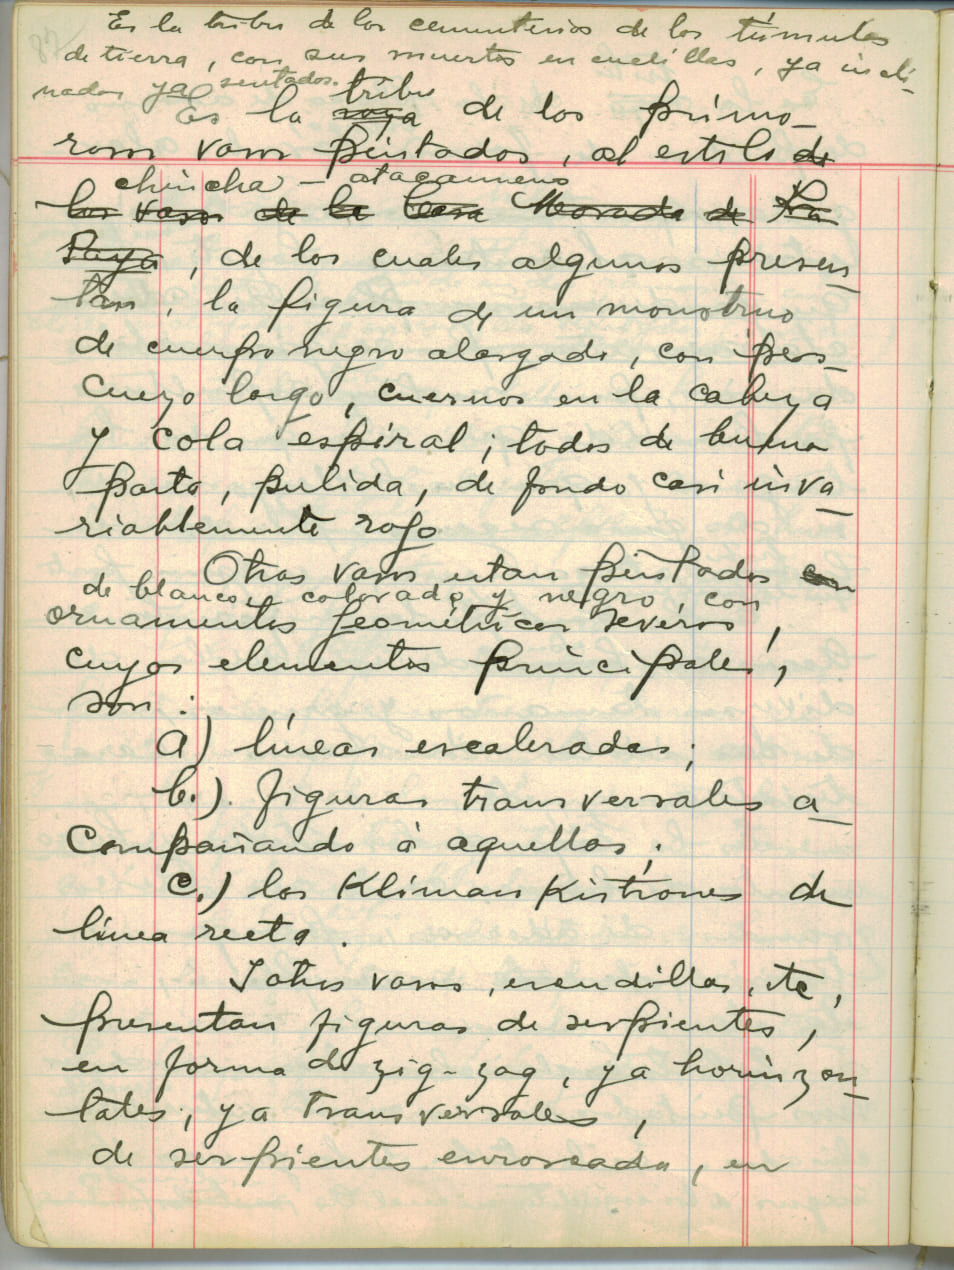 Es la tribu de los cementerios de los túmulos
de tierra, con sus muertos en cuclillas, ya incli-
nados ya sentados.
tribu
Es la raza de los primo-
rosos vasos pintados, al estilo de
chincha-atacameno
los vasos de la Casa Morada de La
Paya, de los cuales algunos presen
tan, la figura de un monstruo
de cuerpo negro alargado, con pes-
cuezo largo, cuernos en la cabeza
y cola espiral; todos de buena
pasta, pulida, de fondo casi inva
riablemente rojo
Otros vasos estan pintados con
de blanco, colorado y negro, con
ornamentos geométricos severos,
cuyos elementos principales,
son:
a) líneas escaleradas;
b.). figuras transversales a
compañando à aquellas;
c.) los Klimankistrones de
línea recta.
I otros vasos, escudillas, etc,
presentan figuras de serpientes,
en forma de zig-zag, ya horizon
tales, ya transversales,
de serpientes enroscada, en